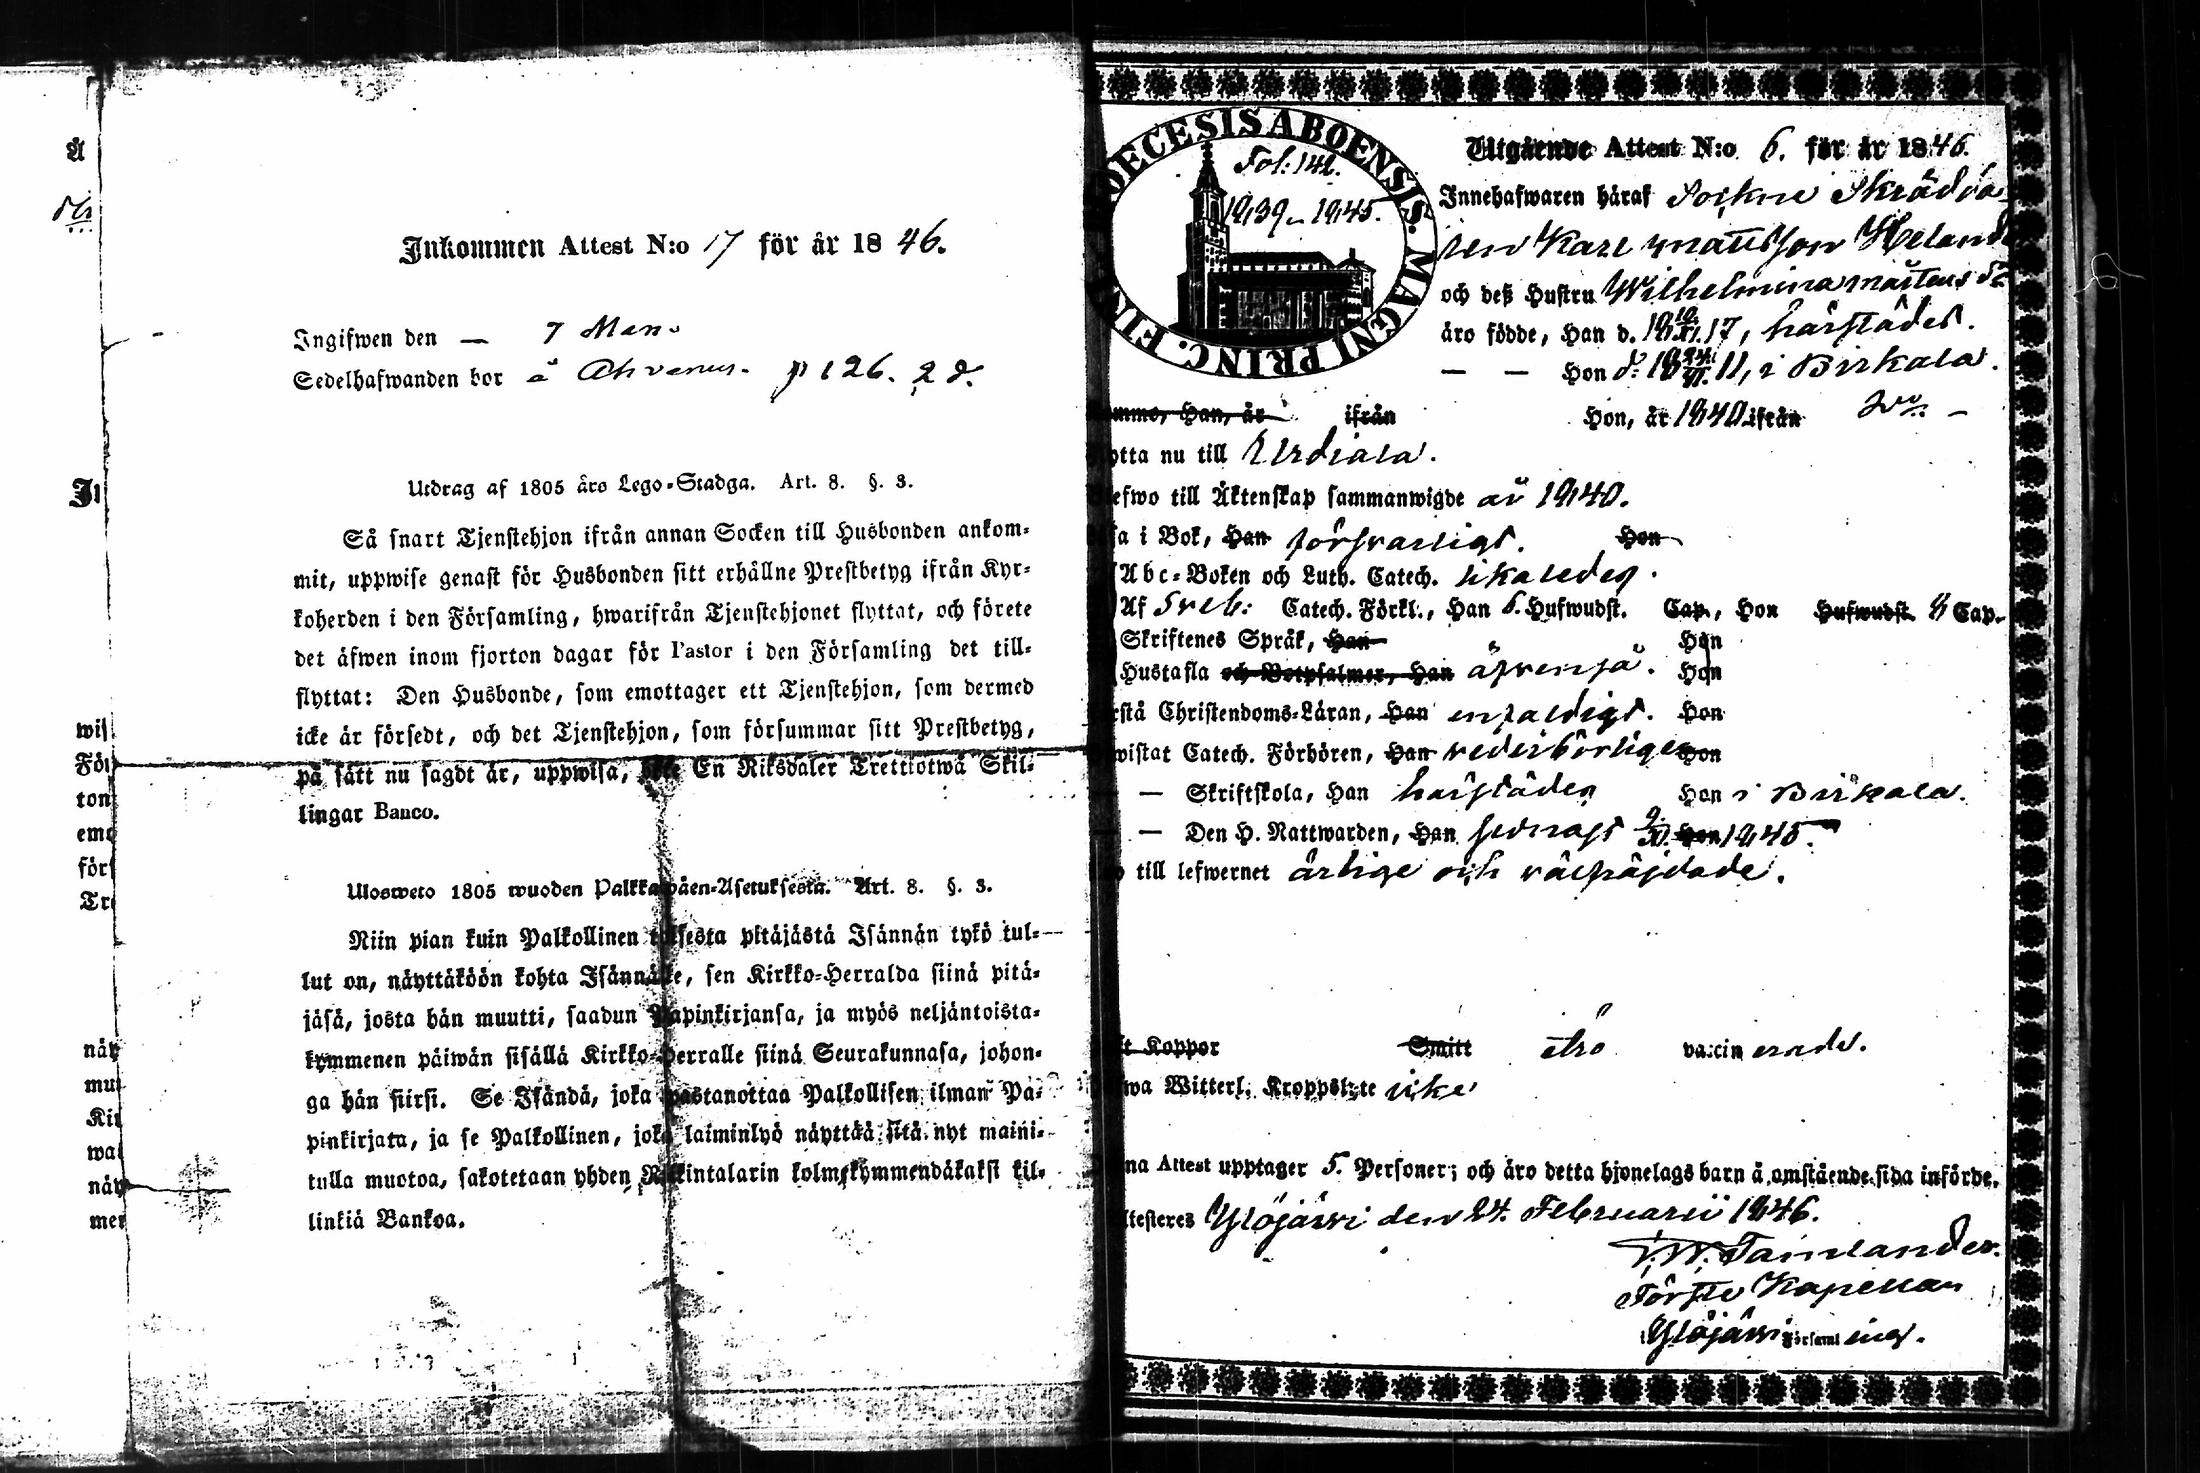 Inkommen Attest N:o 17 för år 1846.
Ingifwen den — 7 Mars
Sedelhafwanden bor å Ahvenus. p 126. 2 d.
Utdrag af 1805 års Lego-Stadga. Art. 8. §. 3.
Så snart Tjenstehjon ifrån annan Socken till Husbonden ankom-
mit, uppwise genast för Husbonden sitt erhållne Prestbetyg ifrån Kyr-
koherden i den Församling, hwarifrån Tjenstehjonet flyttat, och förete
det äfwen inom fjorton dagar för Pastor i den Församling det till-
flyttat: Den Husbonde, som emottager ett Tjenstehjon, som dermed
icke är försedt, och det Tjenstehjon, som försummar sitt Prestbetyg,
på sätt nu sagdt är, uppwisa, böte En Riksdaler Trettiotwå Skil-
lingar Banco.
Ulosweto 1805 wuoden Palkkawäen-Asetuksesta. Art. 8. §. 3.
Niin pian kuin Palkollinen toisesta pitäjästä Isännän tykö tul-
lut on, näyttäköön kohta Isännälle, sen Kirkko-Herralda siinä pitä-
jäsä, josta hän muutti, saadun Papinkirjansa, ja myös neljäntoista-
kymmenen päiwän sisällä Kirkko-Herralle siinä Seurakunnasa, johon-
ga hän siirsi. Se Isändä, joka wastanottaa Palkollisen ilman Pa-
pinkirjata, ja se Palkollinen, joka laiminlyö näyttää sitä nyt maini-
tulla muotoa, sakotetaan yhden Riikintalarin kolmekymmendäkaksi kil-
linkiä Bankoa.
DIOECESIS ABOENSIS. MAGNI PRINC. FIN
Fol. 142.
1839–1845.
Utgående Attest N:o 6. för år 1846.
Innehafwaren häraf Sockne Skrädda-
ren Karl Mattsson Heland
och deß Hustru Wilhelmina Mårtens dr
äro födde, Han d. 18 10/XI. 17, härstädes.
— — Hon d: 18 24/VI. 11, i Birkala.
komme, Han, år ifrån Hon, år 1840 ifrån
flytta nu till Urdiala.
blefwo till Äktenskap sammanwigde år 1840.
läsa i Bok, Han försvarligt. Hon
Abc-Boken och Luth. Catech. likaledes.
Af Sveb: Catech. Förkl., Han 6. Hufwudst. Cap., Hon Hufwudst. 4 Cap.
Skriftenes Språk, Han Hon
Hustafla och Botpsalmer, Han äfvenså. Hon
förstå Christendoms-Läran, Han enfaldigt. Hon
bewistat Catech. Förhören, Han vederbörligen Hon
— Skriftskola, Han härstädes Hon i Birkala.
— Den H. Nattwarden, Han sednast 9/XI. Hon 1845.
till lefwernet ärlige och välfräjdade.
haft Koppor Smitt äro vaccinerade.
hafwa Witterl. Kroppslyte icke
Denna Attest upptager 5. Personer; och äro detta hjonelags barn å omstående sida införde.
attesteres Ylöjärvi den 24. Februarii 1846.
Förste Kapellan
i Ylöjärvi Församling.